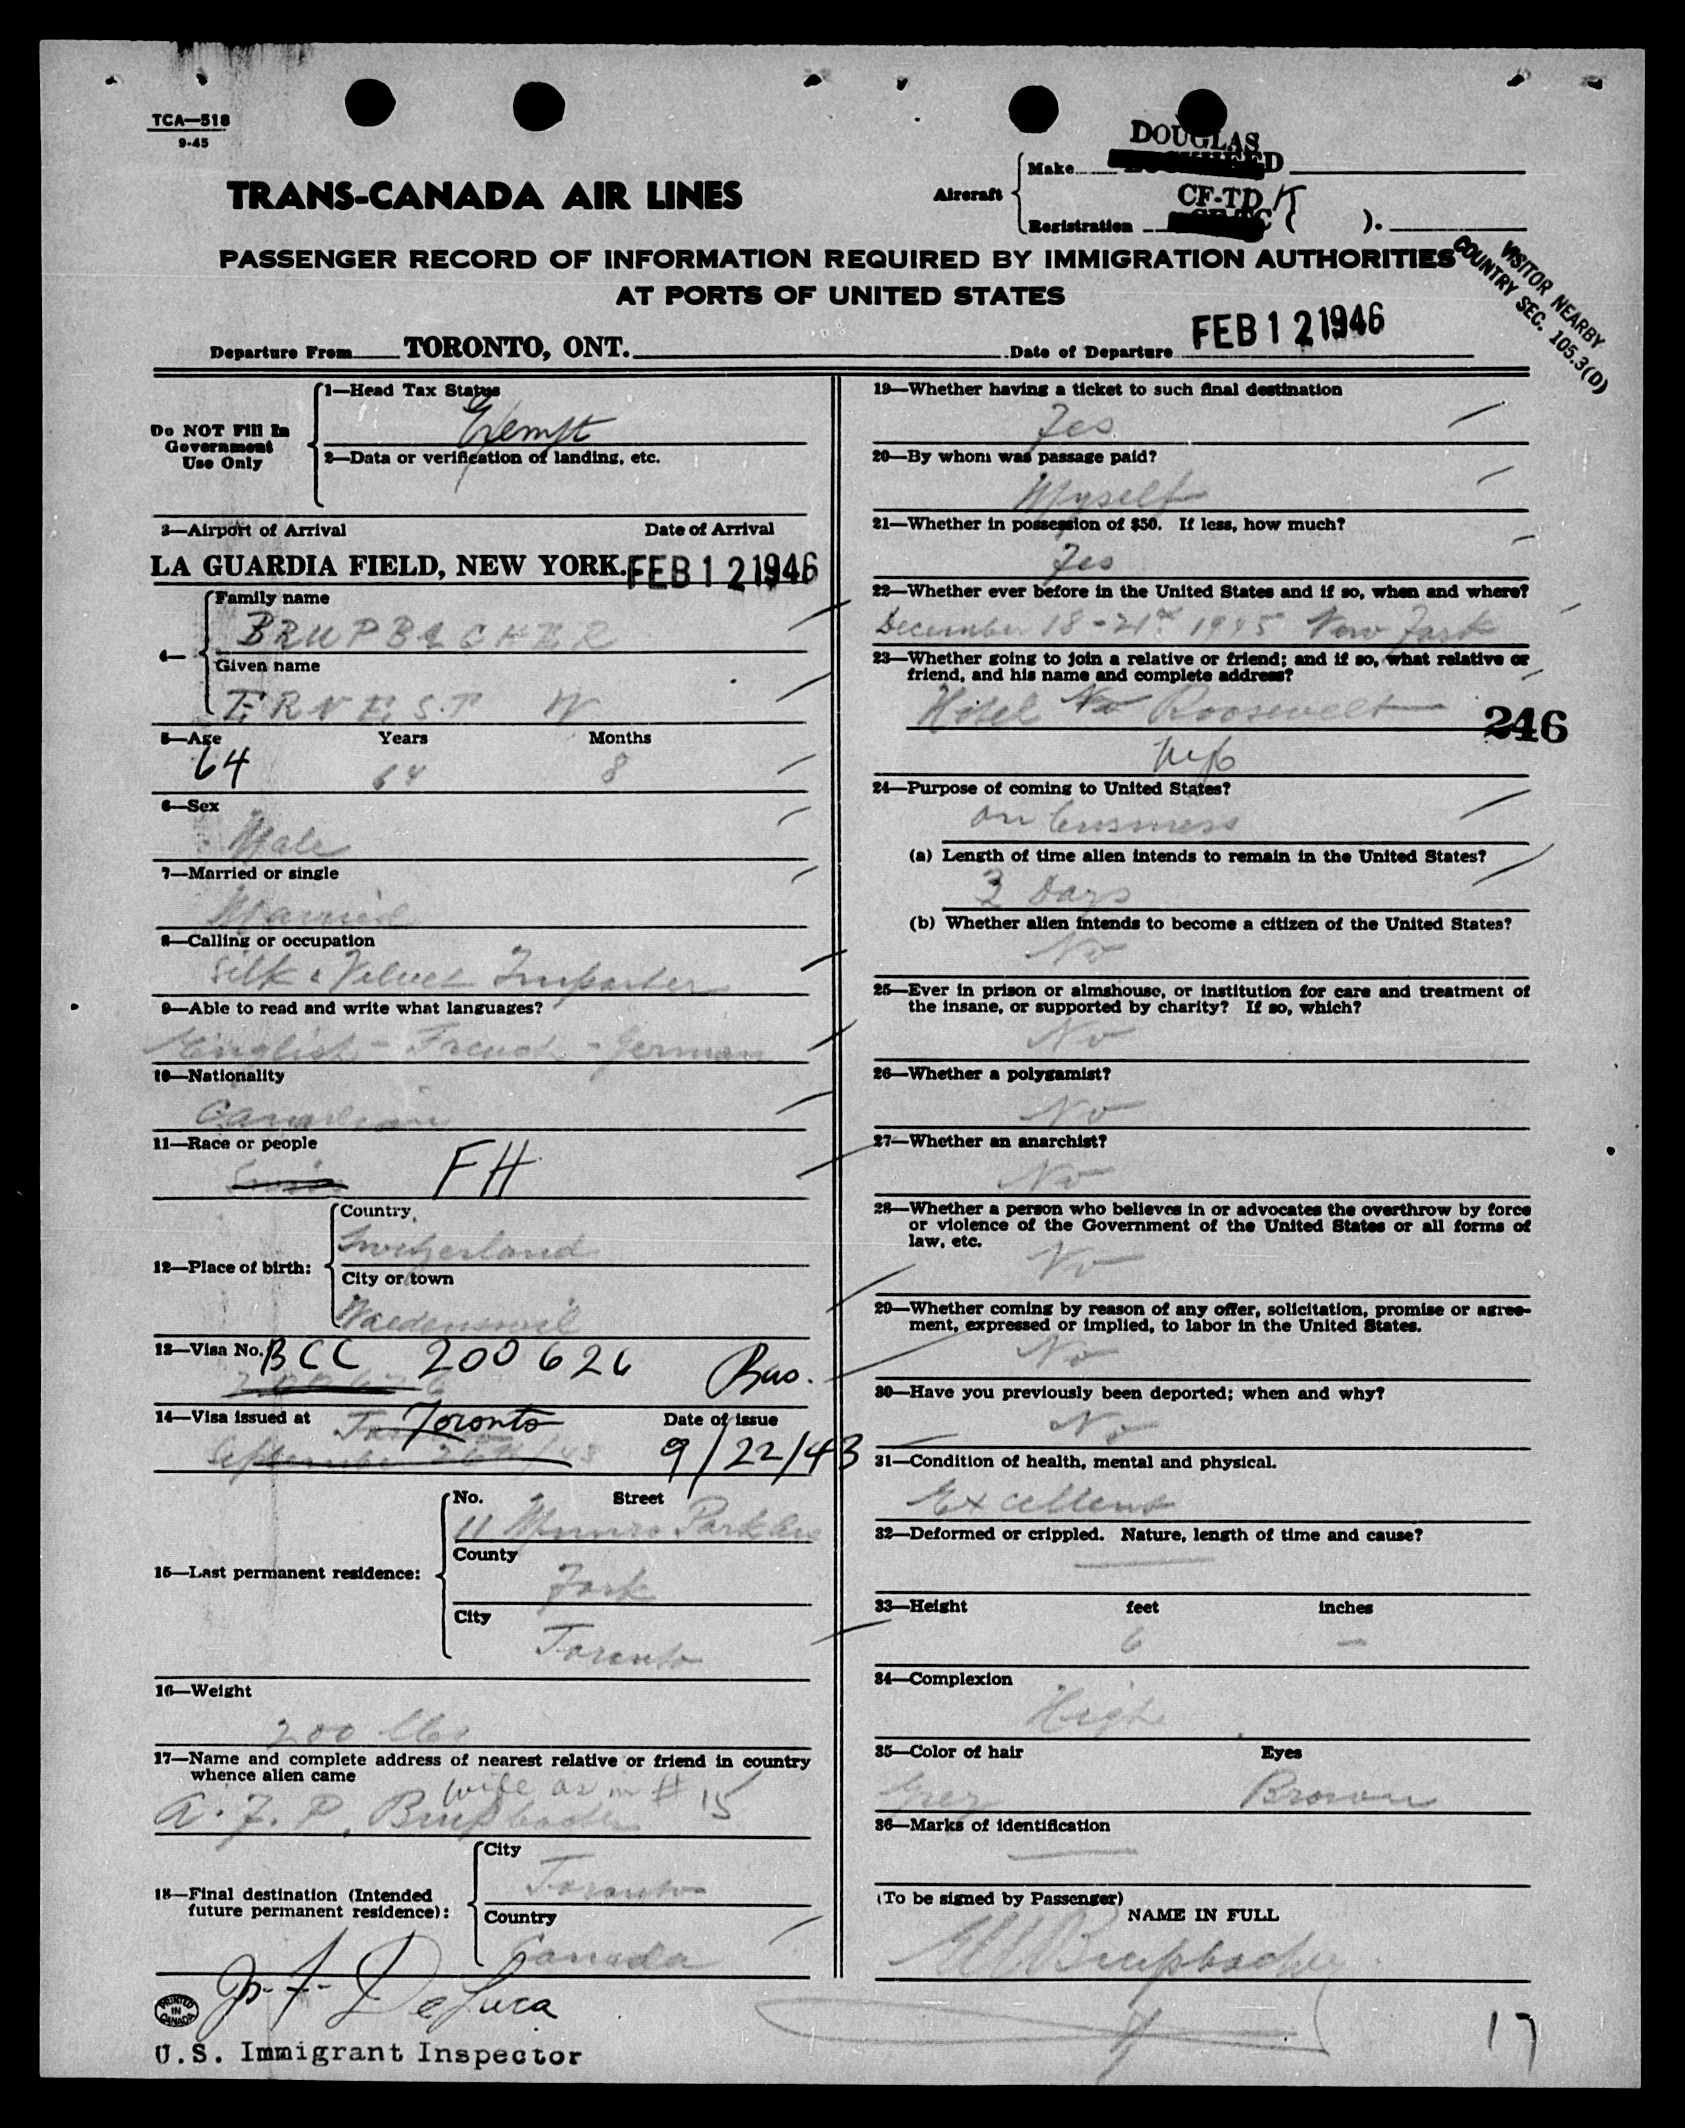 TCA—518
9-45
DOUGLAS
Aircraft
Make
CF-TD
Registration ( ).
TRANS-CANADA AIR LINES
PASSENGER RECORD OF INFORMATION REQUIRED BY IMMIGRATION AUTHORITIES
AT PORTS OF UNITED STATES
VISITOR NEARBY
COUNTRY SEC. 105.3(D)
Departure From TORONTO, ONT. Date of Departure FEB 12 1946
Do NOT Fill In
Government
Use Only
1—Head Tax Status
Exempt
2—Data or verification of landing, etc.
3—Airport of Arrival Date of Arrival
LA GUARDIA FIELD, NEW YORK. FEB 12 1946
4—
Family name
BRUPBACHER
Given name
ERNEST W
5—Age Years Months
64 64 8
6—Sex
Male
7—Married or single
Married
8—Calling or occupation
Silk & Velvet Importer
9—Able to read and write what languages?
English - French - German
10—Nationality
Canadian
11—Race or people
Swiss FH
12—Place of birth:
Country
Switzerland
City or town
Waedenswil
13—Visa No. BCC 200626 Bus.
200626
14—Visa issued at Toronto Date of issue
September 26th/43 9/22/43
15—Last permanent residence:
No. Street
11 Munro Park Ave
County
York
City
Toronto
16—Weight
200 lbs
17—Name and complete address of nearest relative or friend in country
whence alien came
wife as in # 15
A. F. P. Brupbacher
18—Final destination (Intended
future permanent residence):
City
Toronto
Country
Canada
J. F. DeLuca
PRINTED IN CANADA
U.S. Immigrant Inspector
19—Whether having a ticket to such final destination
Yes
20—By whom was passage paid?
Myself
21—Whether in possession of $50. If less, how much?
Yes
22—Whether ever before in the United States and if so, when and where?
December 18-21st 1945 New York
23—Whether going to join a relative or friend; and if so, what relative or
friend, and his name and complete address?
Hotel No Roosevelt
246
24—Purpose of coming to United States?
on business
(a) Length of time alien intends to remain in the United States?
3 Days
(b) Whether alien intends to become a citizen of the United States?
No
25—Ever in prison or almshouse, or institution for care and treatment of
the insane, or supported by charity? If so, which?
No
26—Whether a polygamist?
No
27—Whether an anarchist?
No
28—Whether a person who believes in or advocates the overthrow by force
or violence of the Government of the United States or all forms of
law, etc.
No
29—Whether coming by reason of any offer, solicitation, promise or agree-
ment, expressed or implied, to labor in the United States.
No
30—Have you previously been deported; when and why?
No
31—Condition of health, mental and physical.
Excellent
32—Deformed or crippled. Nature, length of time and cause?
33—Height feet inches
6 —
34—Complexion
High
35—Color of hair Eyes
Grey Brown
36—Marks of identification
(To be signed by Passenger)
NAME IN FULL
EW Brupbacher
17